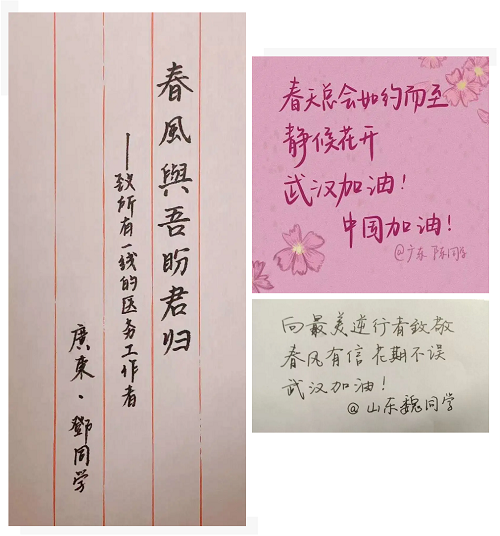 春風與吾盼君归
——致所有一线的医务工作者
廣東·鄧同学
春天总会如约而至
静候花开
武汉加油！
中国加油！
@广东 陈同学
向最美逆行者致敬
春风有信 花期不误
武汉加油！
@山东魏同学